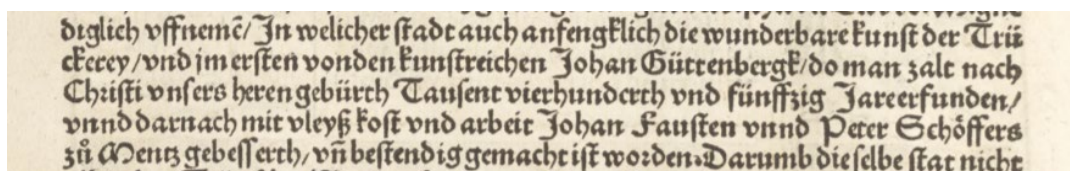 diglich vffnemē/ In welicher stadt auch anfengklich die wunderbare kunst der Trü
ckerey/ vnd jm ersten von den kunstreichen Johan Güttenbergk/ do man zalt nach
Christi vnsers heren gebürth Tausent vierhunderth vnd fünffzig Jare erfunden/
vnnd darnach mit vleyß kost vnd arbeit Johan Fausten vnnd Peter Schöffers
zů Mentz gebesserth/ vn̄ bestendig gemacht ist worden. Darumb die selbe stat nicht